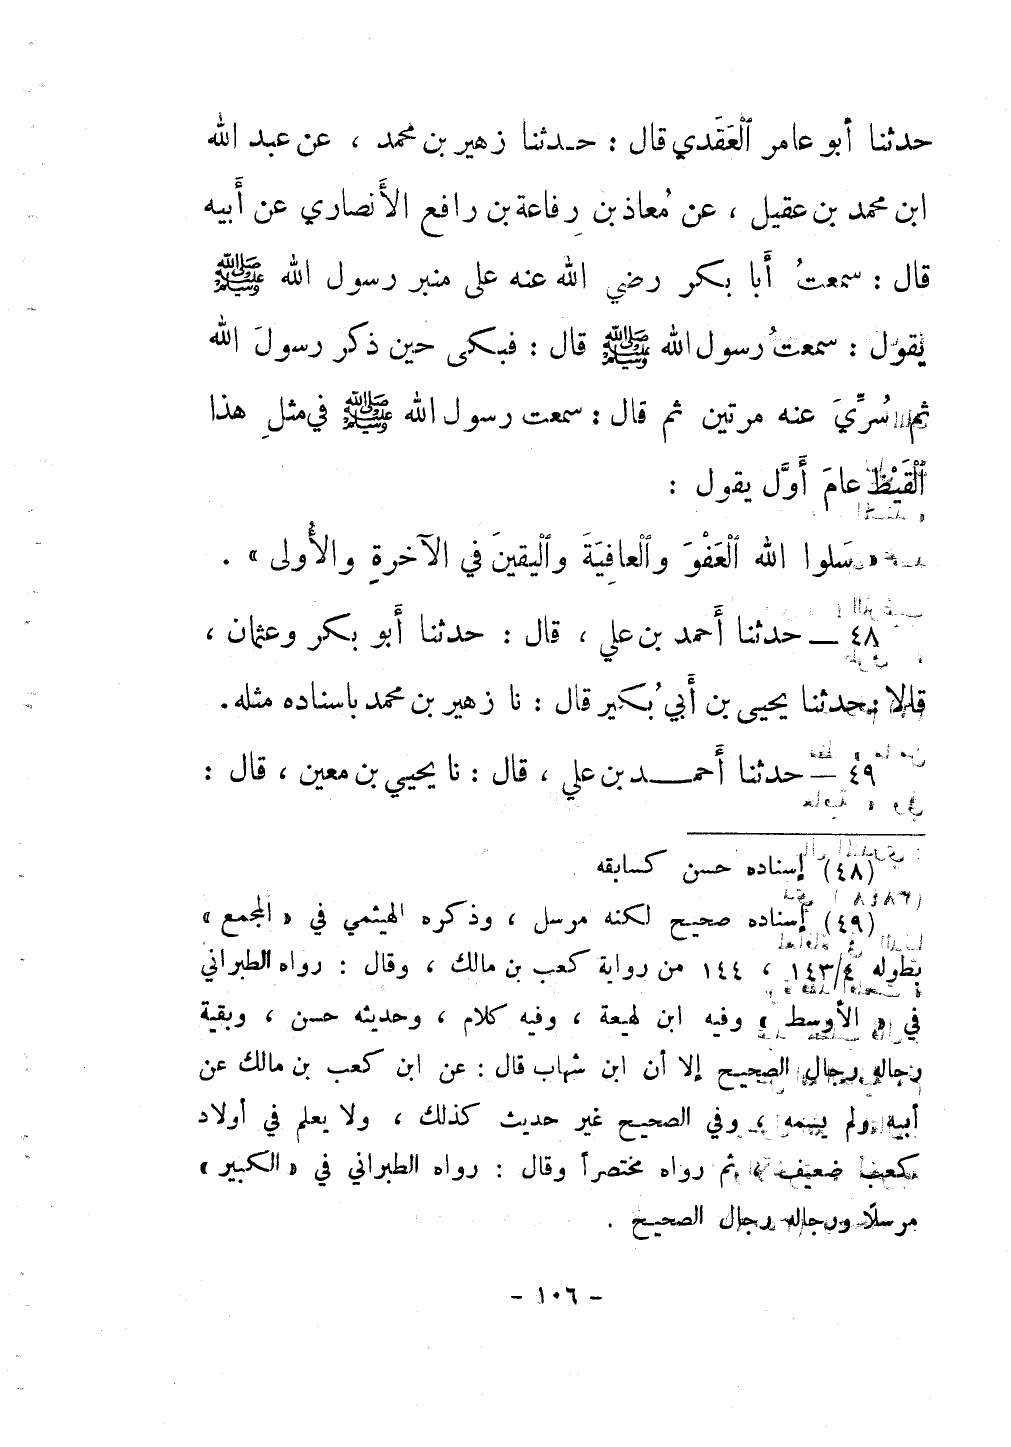 حدثنا أبو عامر ٱلْعَقَدي قال : حـدثنا زهير بن محمد ، عن عبد الله
ابن محمد بن عقيل ، عن مُعاذ بن رِفاعة بن رافع الأَنصاري عن أَبيه
قال : سمعتُ أَبا بكر رضي الله عنه على منبر رسول الله ﷺ
يقول : سمعتُ رسول الله ﷺ قال : فبكى حين ذكر رسولَ الله
ثم سُرِّيَ عنه مرتين ثم قال : سمعت رسول الله ﷺ في مثلِ هذا
ٱلْقَيْظ عامَ أَوَّل يقول :
« سَلوا الله ٱلْعَفْوَ وٱلعافِيَةَ وٱليقينَ في الآخرةِ والأُولى » .
٤٨ ــ حدثنا أَحمد بن علي ، قال : حدثنا أَبو بكر وعثمان ،
قالا : حدثنا يحيى بن أَبي بُكير قال : نا زهير بن محمد باسناده مثله .
٤٩ ــ حدثنا أَحمـــد بن علي ، قال : نا يحيي بن معين ، قال :
(٤٨) إسناده حسن كسابقه
(٤٩) إسناده صحيح لكنه مرسل ، وذكره الهيثمي في « المجمع »
بطوله ١٤٣/٤ ، ١٤٤ من رواية كعب بن مالك ، وقال : رواه الطبراني
في « الأوسط » وفيه ابن لهيعة ، وفيه كلام ، وحديثه حسن ، وبقية
رجاله رجال الصحيح إلا أن ابن شهاب قال : عن ابن كعب بن مالك عن
أبيه ولم يسمه ، وفي الصحيح غير حديث كذلك ، ولا يعلم في أولاد
كعب ضعيف ، ثم رواه مختصراً وقال : رواه الطبراني في « الكبير »
مرسلًا ورجاله رجال الصحيح .
- ١٠٦ -